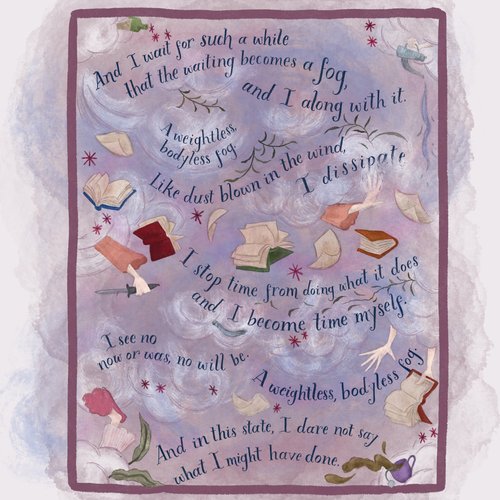 And I wait for such a while
that the waiting becomes a fog,
and I along with it.
A weightless,
bodyless fog.
Like dust blown in the wind,
I dissipate
I stop time from doing what it does
and I become time myself.
I see no
now or was, no will be.
A weightless, bodyless fog.
And in this state, I dare not say
what I might have done.